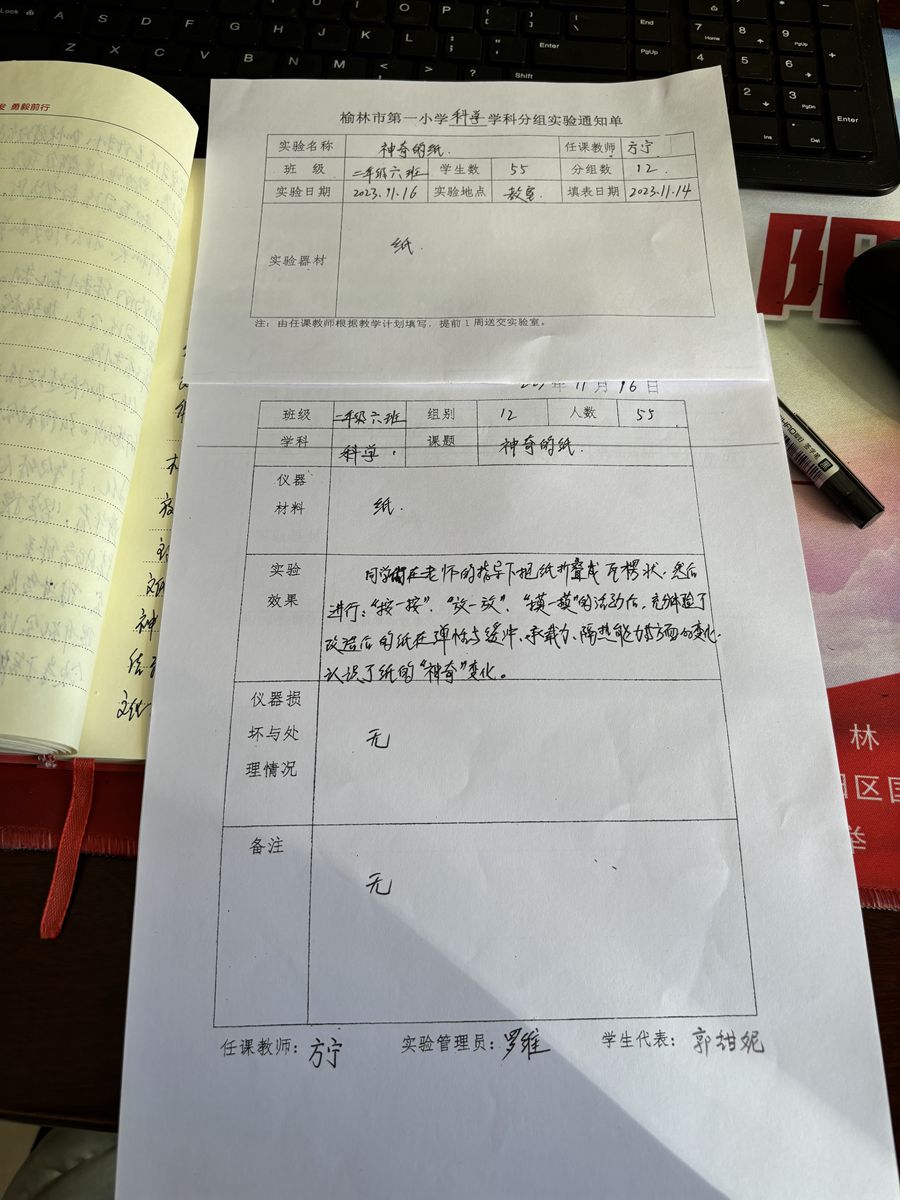 勇毅前行
榆林市第一小学科学学科分组实验通知单
实验名称 神奇的纸. 任课教师 方宁
班 级 二年级六班 学生数 55 分组数 12.
实验日期 2023.11.16 实验地点 教室. 填表日期 2023.11.14
实验器材 纸.
注：由任课教师根据教学计划填写，提前1周送交实验室。
年 11 月 16 日
班级 二年级六班 组别 12 人数 55
学科 科学. 课题 神奇的纸.
仪器
材料 纸.
实验 同学们在老师的指导下把纸折叠成瓦楞状，然后
效果 进行："按一按"、"放一放"、"摸一摸"的活动后，充分体验了
改造后的纸在弹性与缓冲、承载力、隔热能力方面的变化.
认识了纸的"神奇"变化。
仪器损
坏与处 无
理情况
备注
无
任课教师：方宁 实验管理员：罗维 学生代表：郭甜妮
林
区国
Enter
Shift
End
PgUp
PgDn
Home
Del